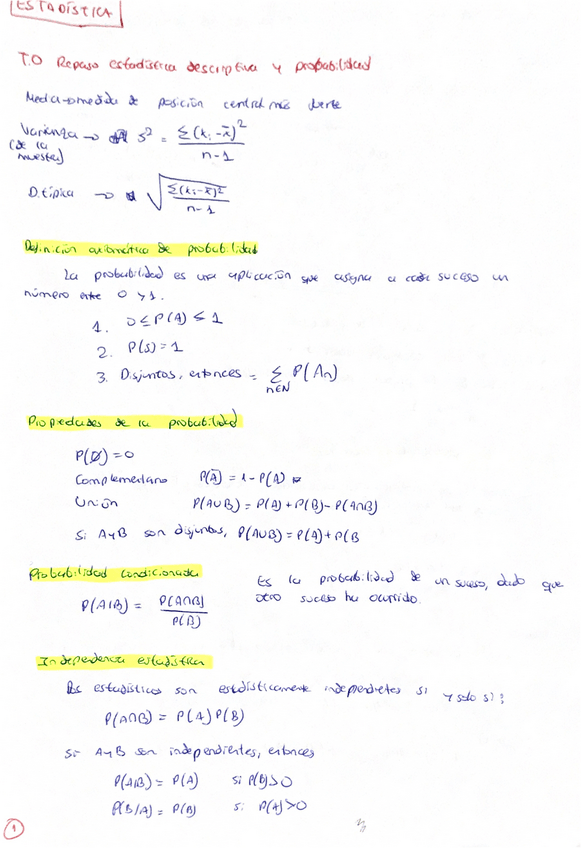 ESTADÍSTICA
T.0 Repaso estadística descriptiva y probabilidad
Media → medida de posición central más
Varianza → s² = Σ(xᵢ-x̄)² / n-1
(de la muestra)
D. típica → √(Σ(xᵢ-x̄)² / n-1)
Definición axiomática de probabilidad
La probabilidad es una aplicación que asigna a cada suceso un
número entre 0 y 1.
1. 0 ≤ P(A) ≤ 1
2. P(S) = 1
3. Disjuntos, entonces = Σ n∈N P(An)
Propiedades de la probabilidad
P(∅) = 0
Complementario P(Ā) = 1 - P(A)
Unión P(A∪B) = P(A) + P(B) - P(A∩B)
Si A y B son disjuntos, P(A∪B) = P(A) + P(B
Probabilidad condicionada
P(A|B) = P(A∩B) / P(B)
Es la probabilidad de un suceso, dado que
otro suceso ha ocurrido.
Independencia estadística
estadísticos son estadísticamente independietes si y solo si:
P(A∩B) = P(A) P(B)
Si A y B son independientes, entonces
P(A|B) = P(A) si P(B) > 0
P(B/A) = P(B) si P(A) > 0
1